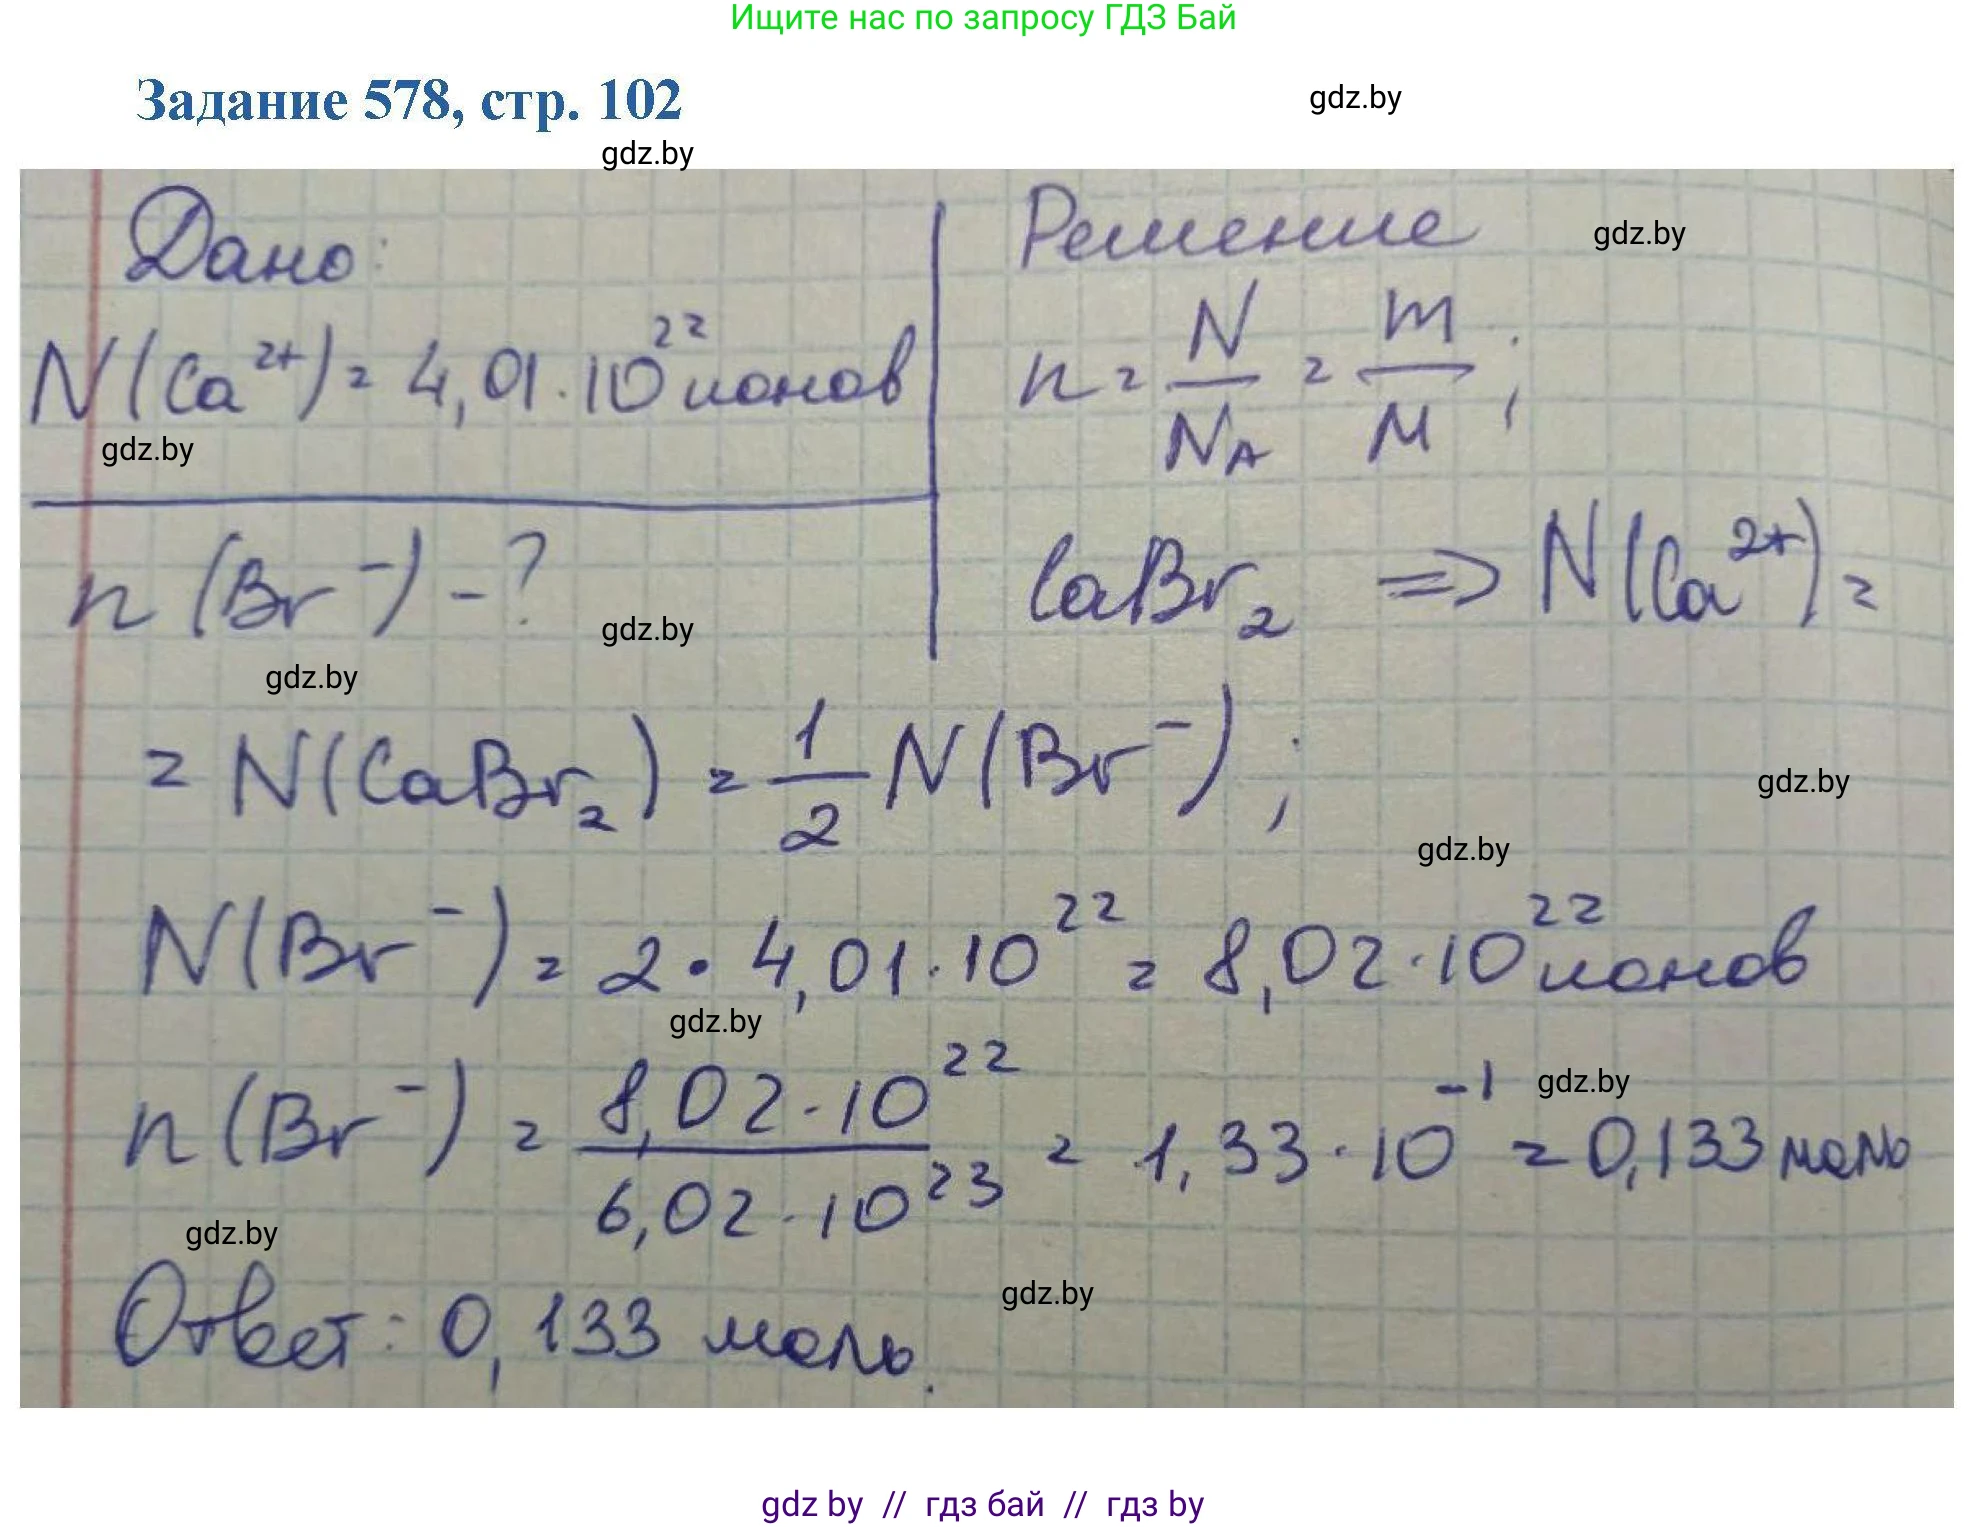 Ищите нас по запросу ГДЗ Бай
Задание 578, стр. 102
gdz.by
gdz.by
Дано:
N(Ca²⁺) = 4,01 · 10²² ионов
gdz.by
n(Br⁻) - ?
gdz.by
gdz.by
Решение
gdz.by
n = N/N_A = m/M ;
CaBr₂ => N(Ca²⁺) =
= N(CaBr₂) = 1/2 N(Br⁻) ;
gdz.by
gdz.by
N(Br⁻) = 2 · 4,01 · 10²² = 8,02 · 10²² ионов
gdz.by
n(Br⁻) = 8,02 · 10²² / 6,02 · 10²³ = 1,33 · 10⁻¹ = 0,133 моль
gdz.by
gdz.by
gdz.by
Ответ: 0,133 моль.
gdz by // гдз бай // гдз by